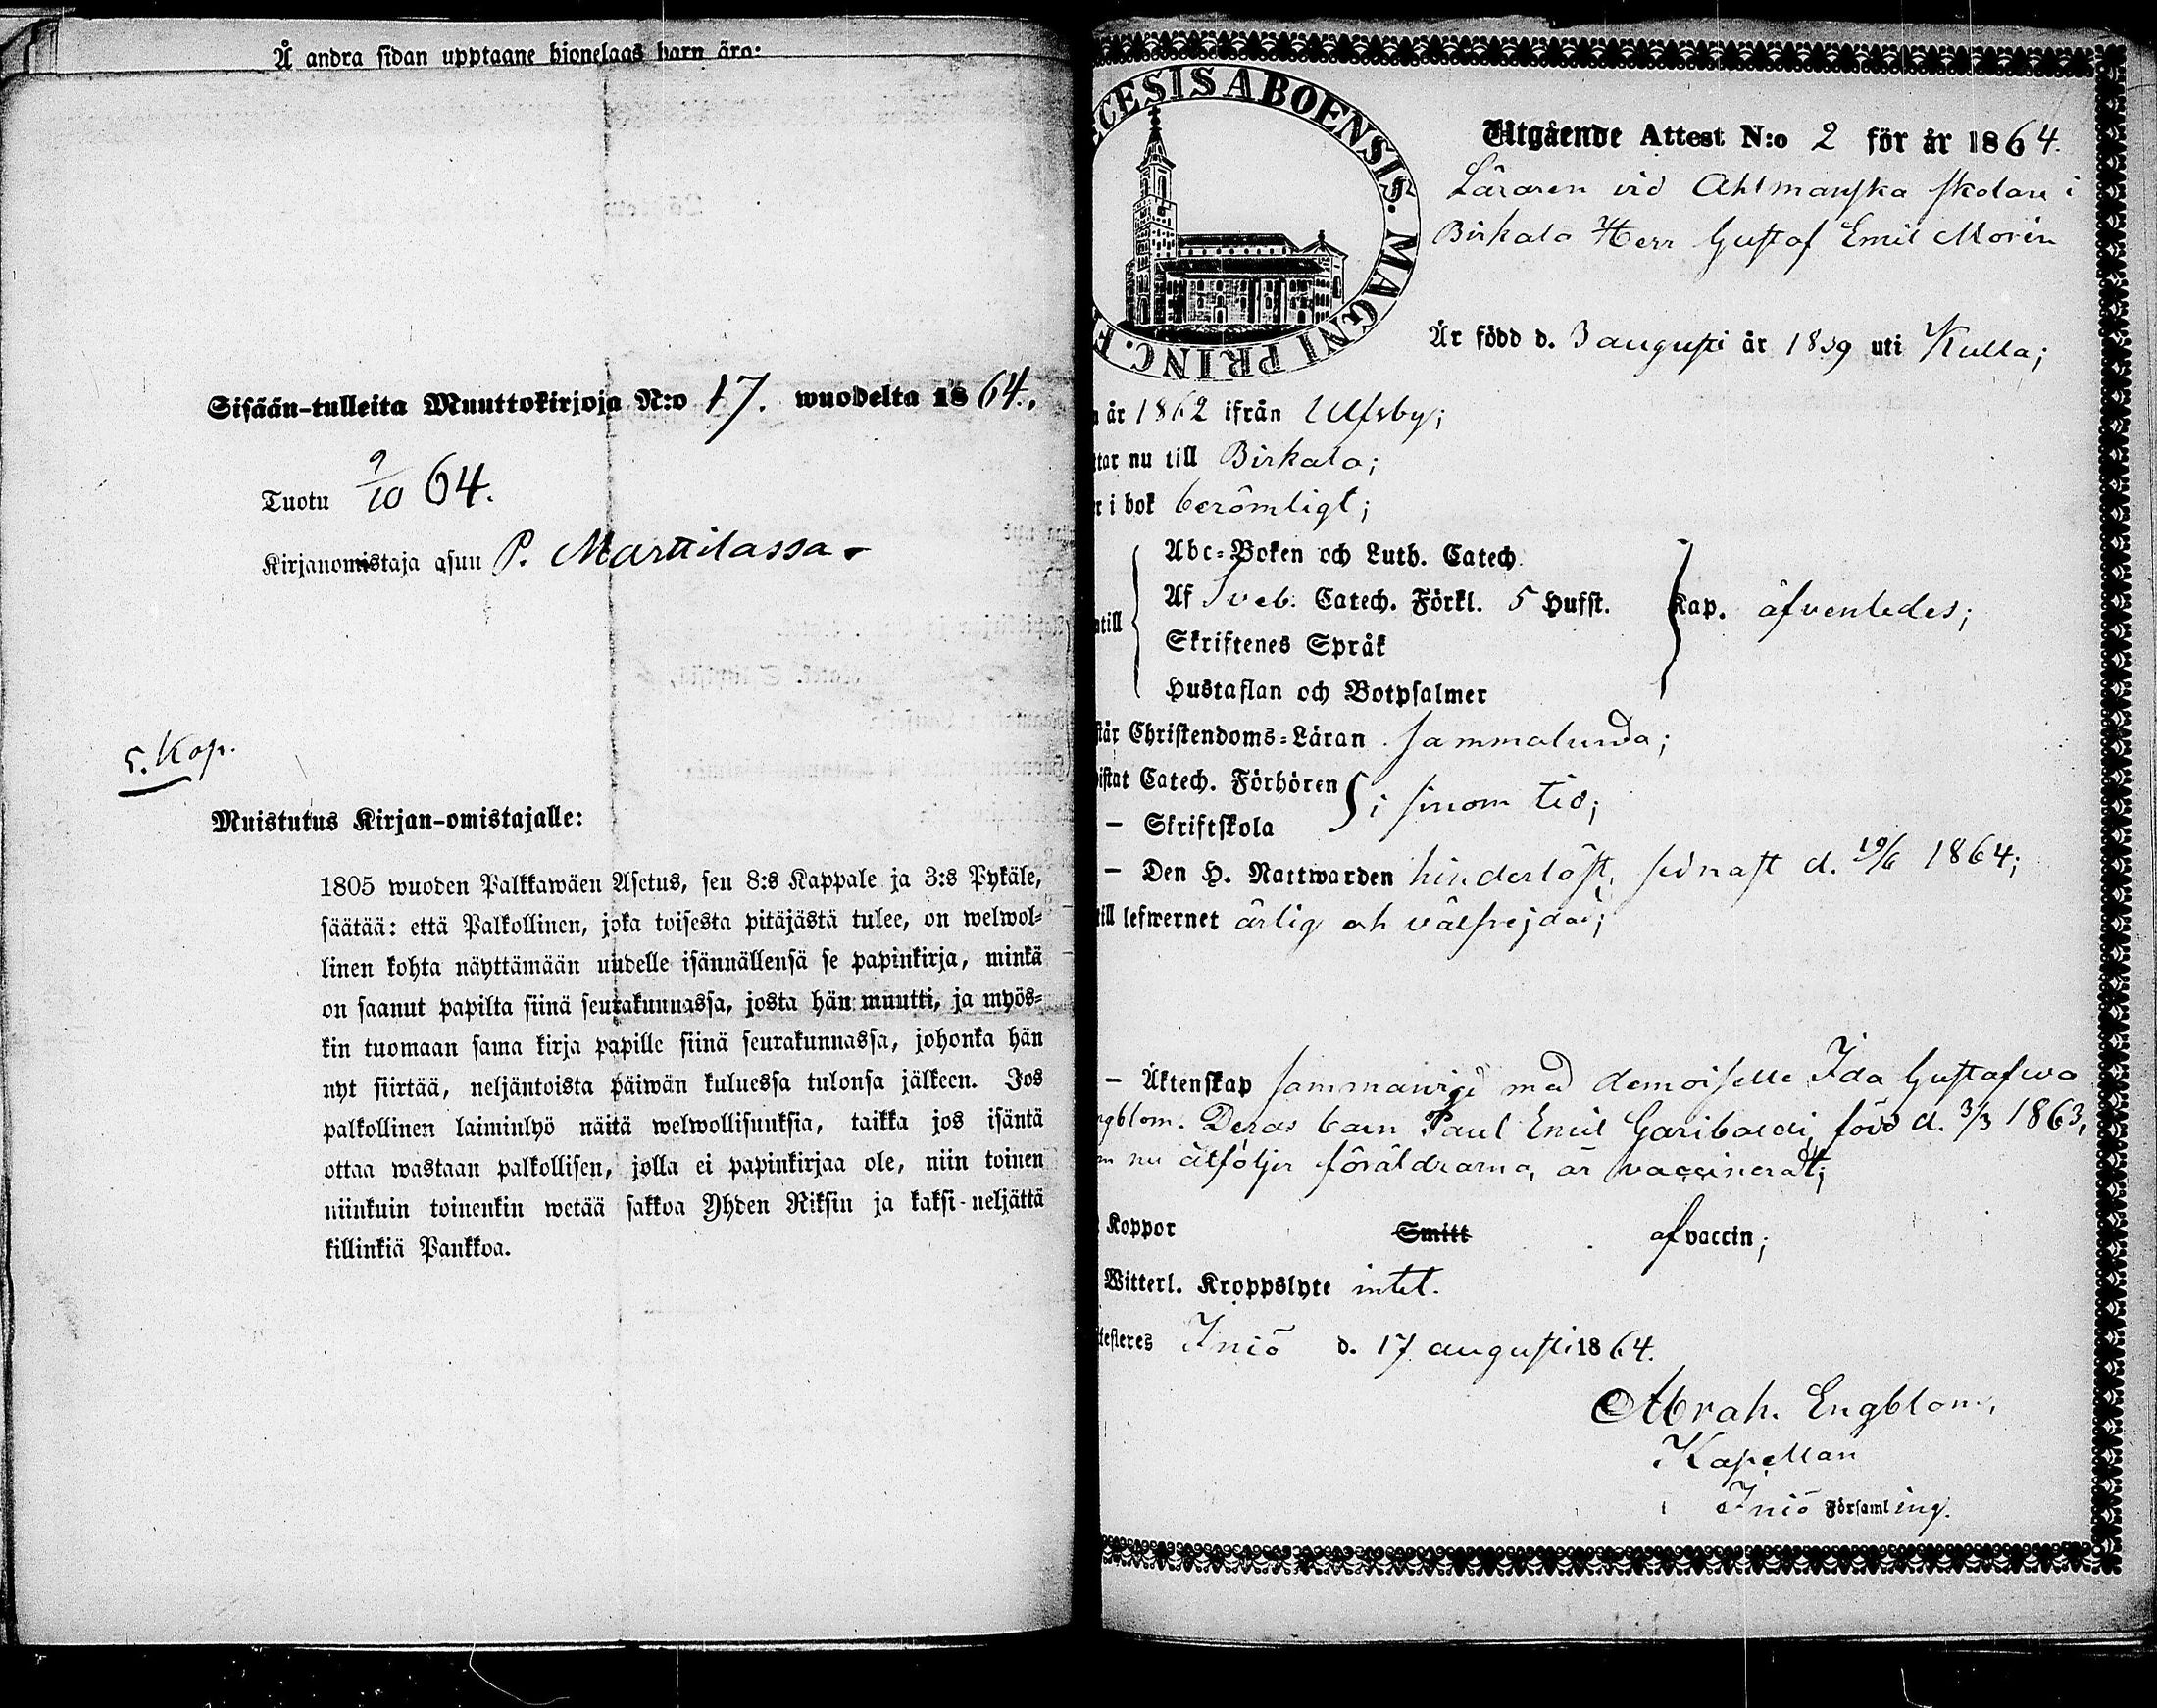 Å andra sidan upptagne hjonelags barn äro:
Sisään-tulleita Muuttokirjoja N:o 17. wuodelta 1864.
Tuotu 9/10 64.
Kirjanomistaja asuu P. Marttilassa.
5. Kop.
Muistutus Kirjan-omistajalle:
1805 wuoden Palkkawäen Asetus, sen 8:s Kappale ja 3:s Pykäle,
säätää: että Palkollinen, joka toisesta pitäjästä tulee, on welwol-
linen kohta näyttämään uudelle isännällensä se papinkirja, minkä
on saanut papilta siinä seurakunnassa, josta hän muutti, ja myös-
kin tuomaan sama kirja papille siinä seurakunnassa, johonka hän
nyt siirtää, neljäntoista päiwän kuluessa tulonsa jälkeen. Jos
palkollinen laiminlyö näitä welwollisuuksia, taikka jos isäntä
ottaa wastaan palkollisen, jolla ei papinkirjaa ole, niin toinen
niinkuin toinenkin wetää sakkoa Yhden Riksin ja kaksi-neljättä
killinkiä Pankkoa.
CESIS ABOENSIS. MAGNI PRINC. F
Utgående Attest N:o 2 för år 1864.
Läraren vid Ahlmanska skolan i
Birkala Herr Gustaf Emil Morén
Är född d. 3 augusti år 1839 uti Kulla;
år 1862 ifrån Ulfsby;
tar nu till Birkala;
r i bok berömligt;
Abc-Boken och Luth. Catech.
Af Sveb. Catech. Förkl. 5 Hufst. Kap. äfvenledes;
till
Skriftenes Språk
Hustaflan och Botpsalmer
står Christendoms-Läran sammalunda;
istat Catech. Förhören i sinom tid;
— Skriftskola
— Den H. Nattwarden hinderlöst, sednast d. 19/6 1864;
till lefwernet ärlig och välfrejdad;
— Äktenskap sammanvigd med demoiselle Ida Gustafva
ngblom. Deras barn Paul Emil Garibaldi, född d. 3/3 1863,
m nu åtföljer föräldrarna, är vaccineradt;
Koppor Smitt af vaccin;
Witterl. Kroppslyte intet.
testeres Iniö d. 17 augusti 1864.
Abrah. Engblom,
Kapellan
i Iniö Församling.